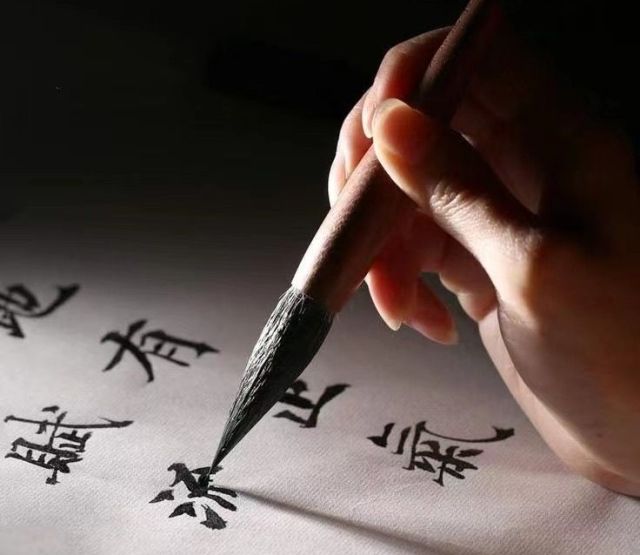 地有正氣
賦流